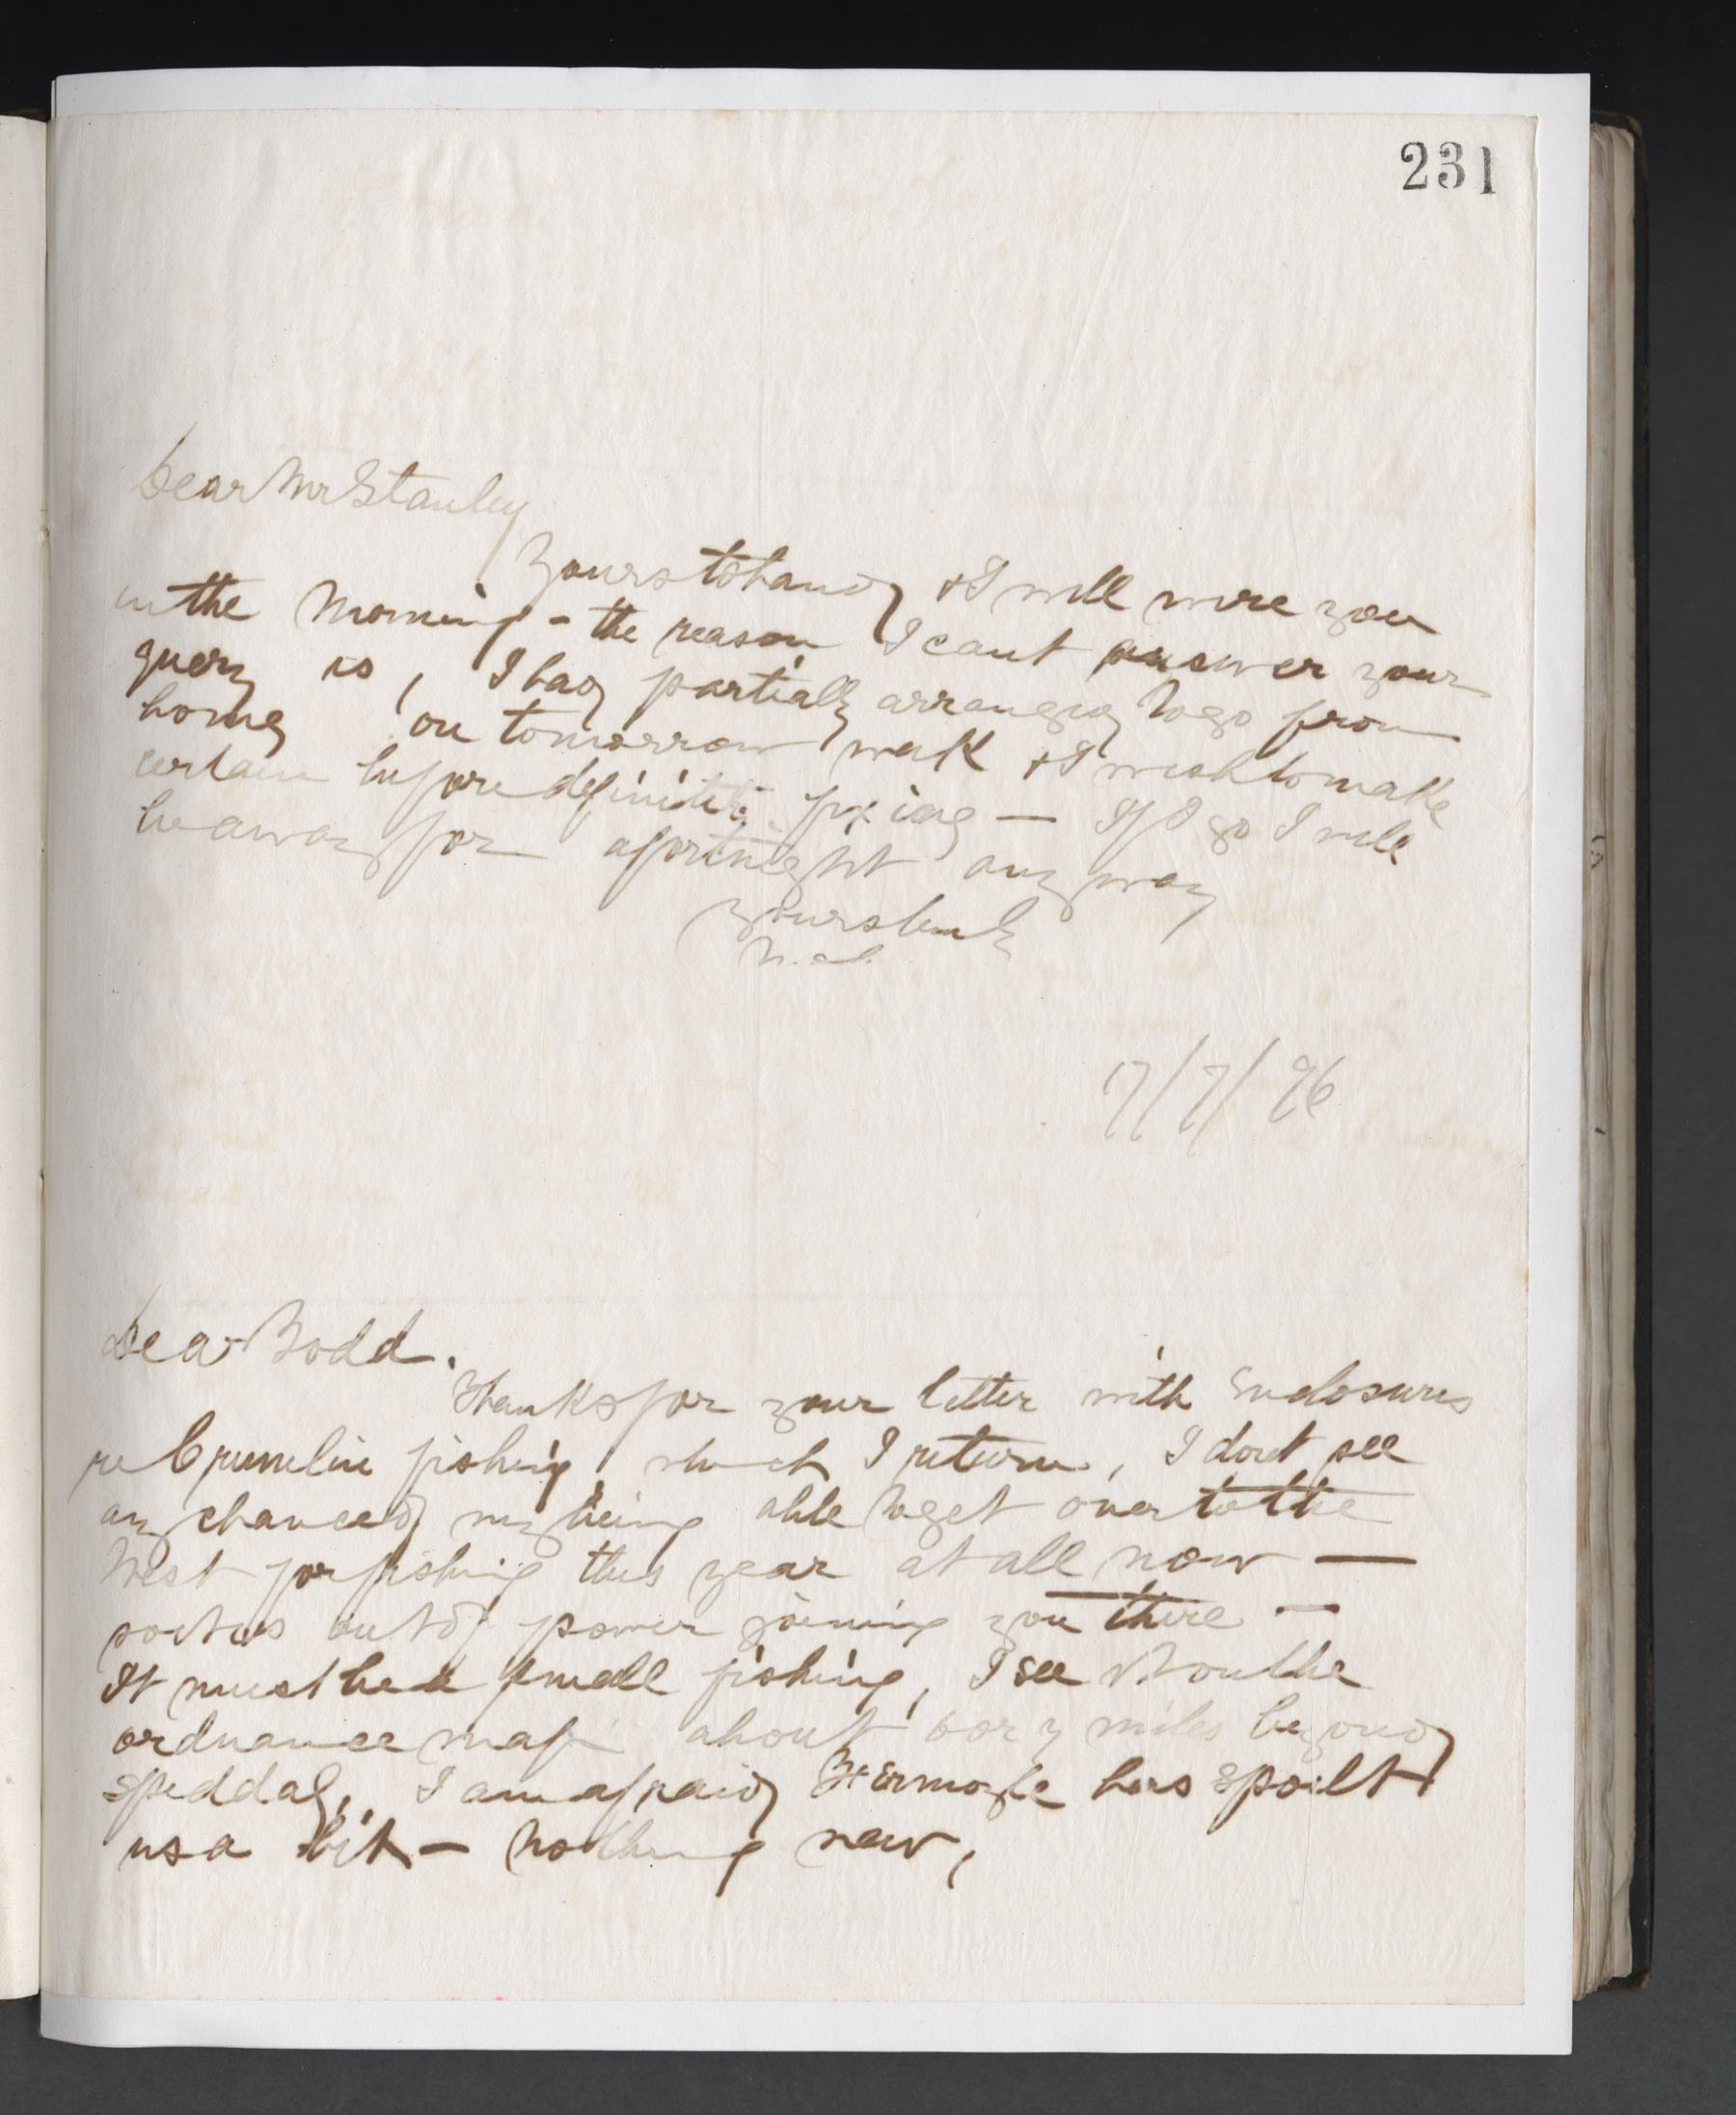 231
Dear Mr Stanley
Yours to hand & I will wire you
in the Morning - the reason I cant answer your
query is, I had partially arranged to go from
home on tomorrow week & I wish to make
certain before definitely fixing — If I go I will
be away for a fortnight any way
Yours truly
17/7/96
Dear Dodd.
Thanks for your letter with Enclosures
re Crumlin fishing, which I return, I dont see
any chance of my being able to get over to the
West for fishing this year at all now —
so it is out of power joining you there —
It must be a small fishing, I see it on the
ordnance map about 6 or 7 miles beyond
Spiddal, I am afraid has spoilt
us a bit - Nothing new,